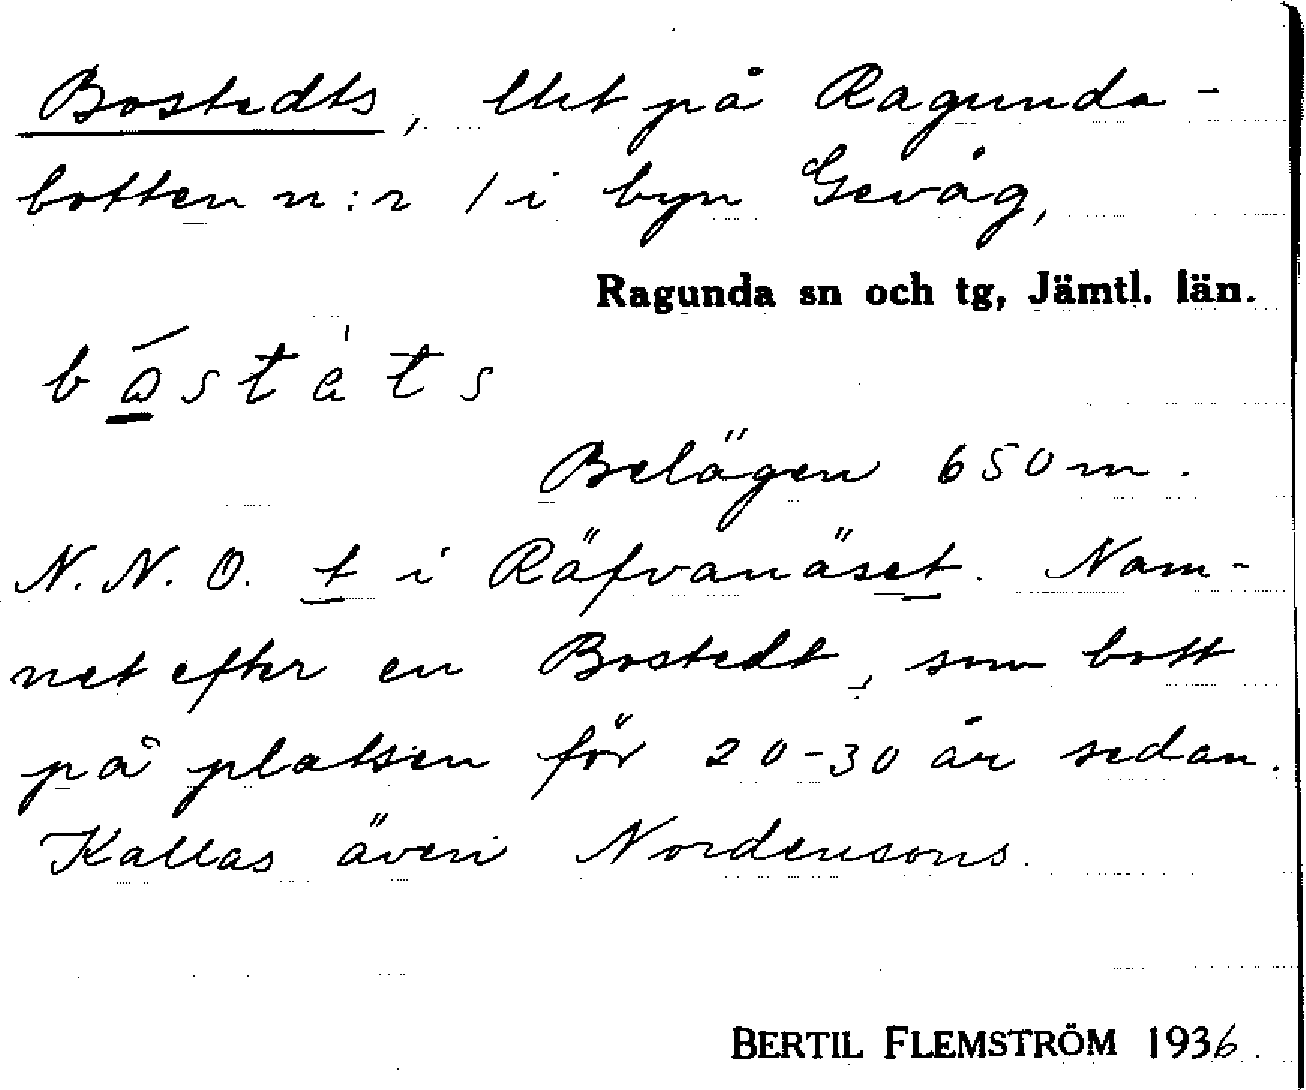 Bostedts, lht på Ragunda-
botten n:r 1 i byn Gevåg,
Ragunda sn och tg, Jämtl. län.
båstets
Belägen 650 m.
N.N.O. t i Räfvanäset. Nam-
net efter en Bostedt, som bott
på platsen för 20-30 år sedan.
Kallas även Nordensons.
BERTIL FLEMSTRÖM 1936.